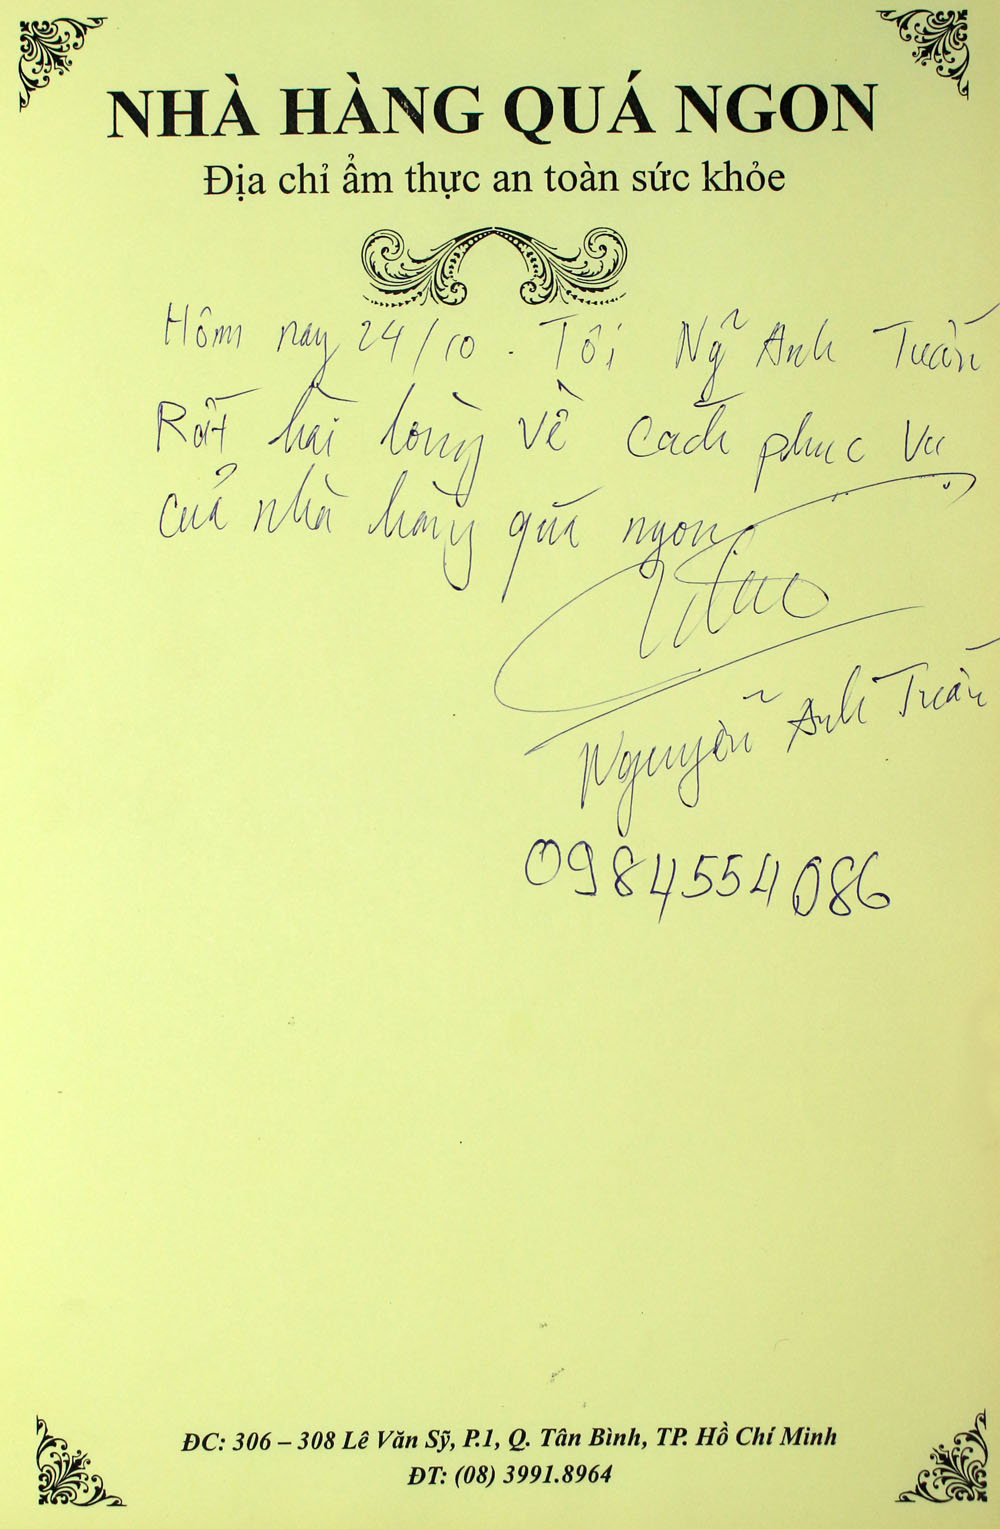 NHÀ HÀNG QUÁ NGON
Địa chỉ ẩm thực an toàn sức khỏe
Hôm nay 24/10. Tôi Ng̃ Anh Tuấn
Rất hài lòng về cách phục vụ
của nhà hàng quá ngon
Nguyễn Anh Tuấn
0984554086
ĐC: 306 – 308 Lê Văn Sỹ, P.1, Q. Tân Bình, TP. Hồ Chí Minh
ĐT: (08) 3991.8964